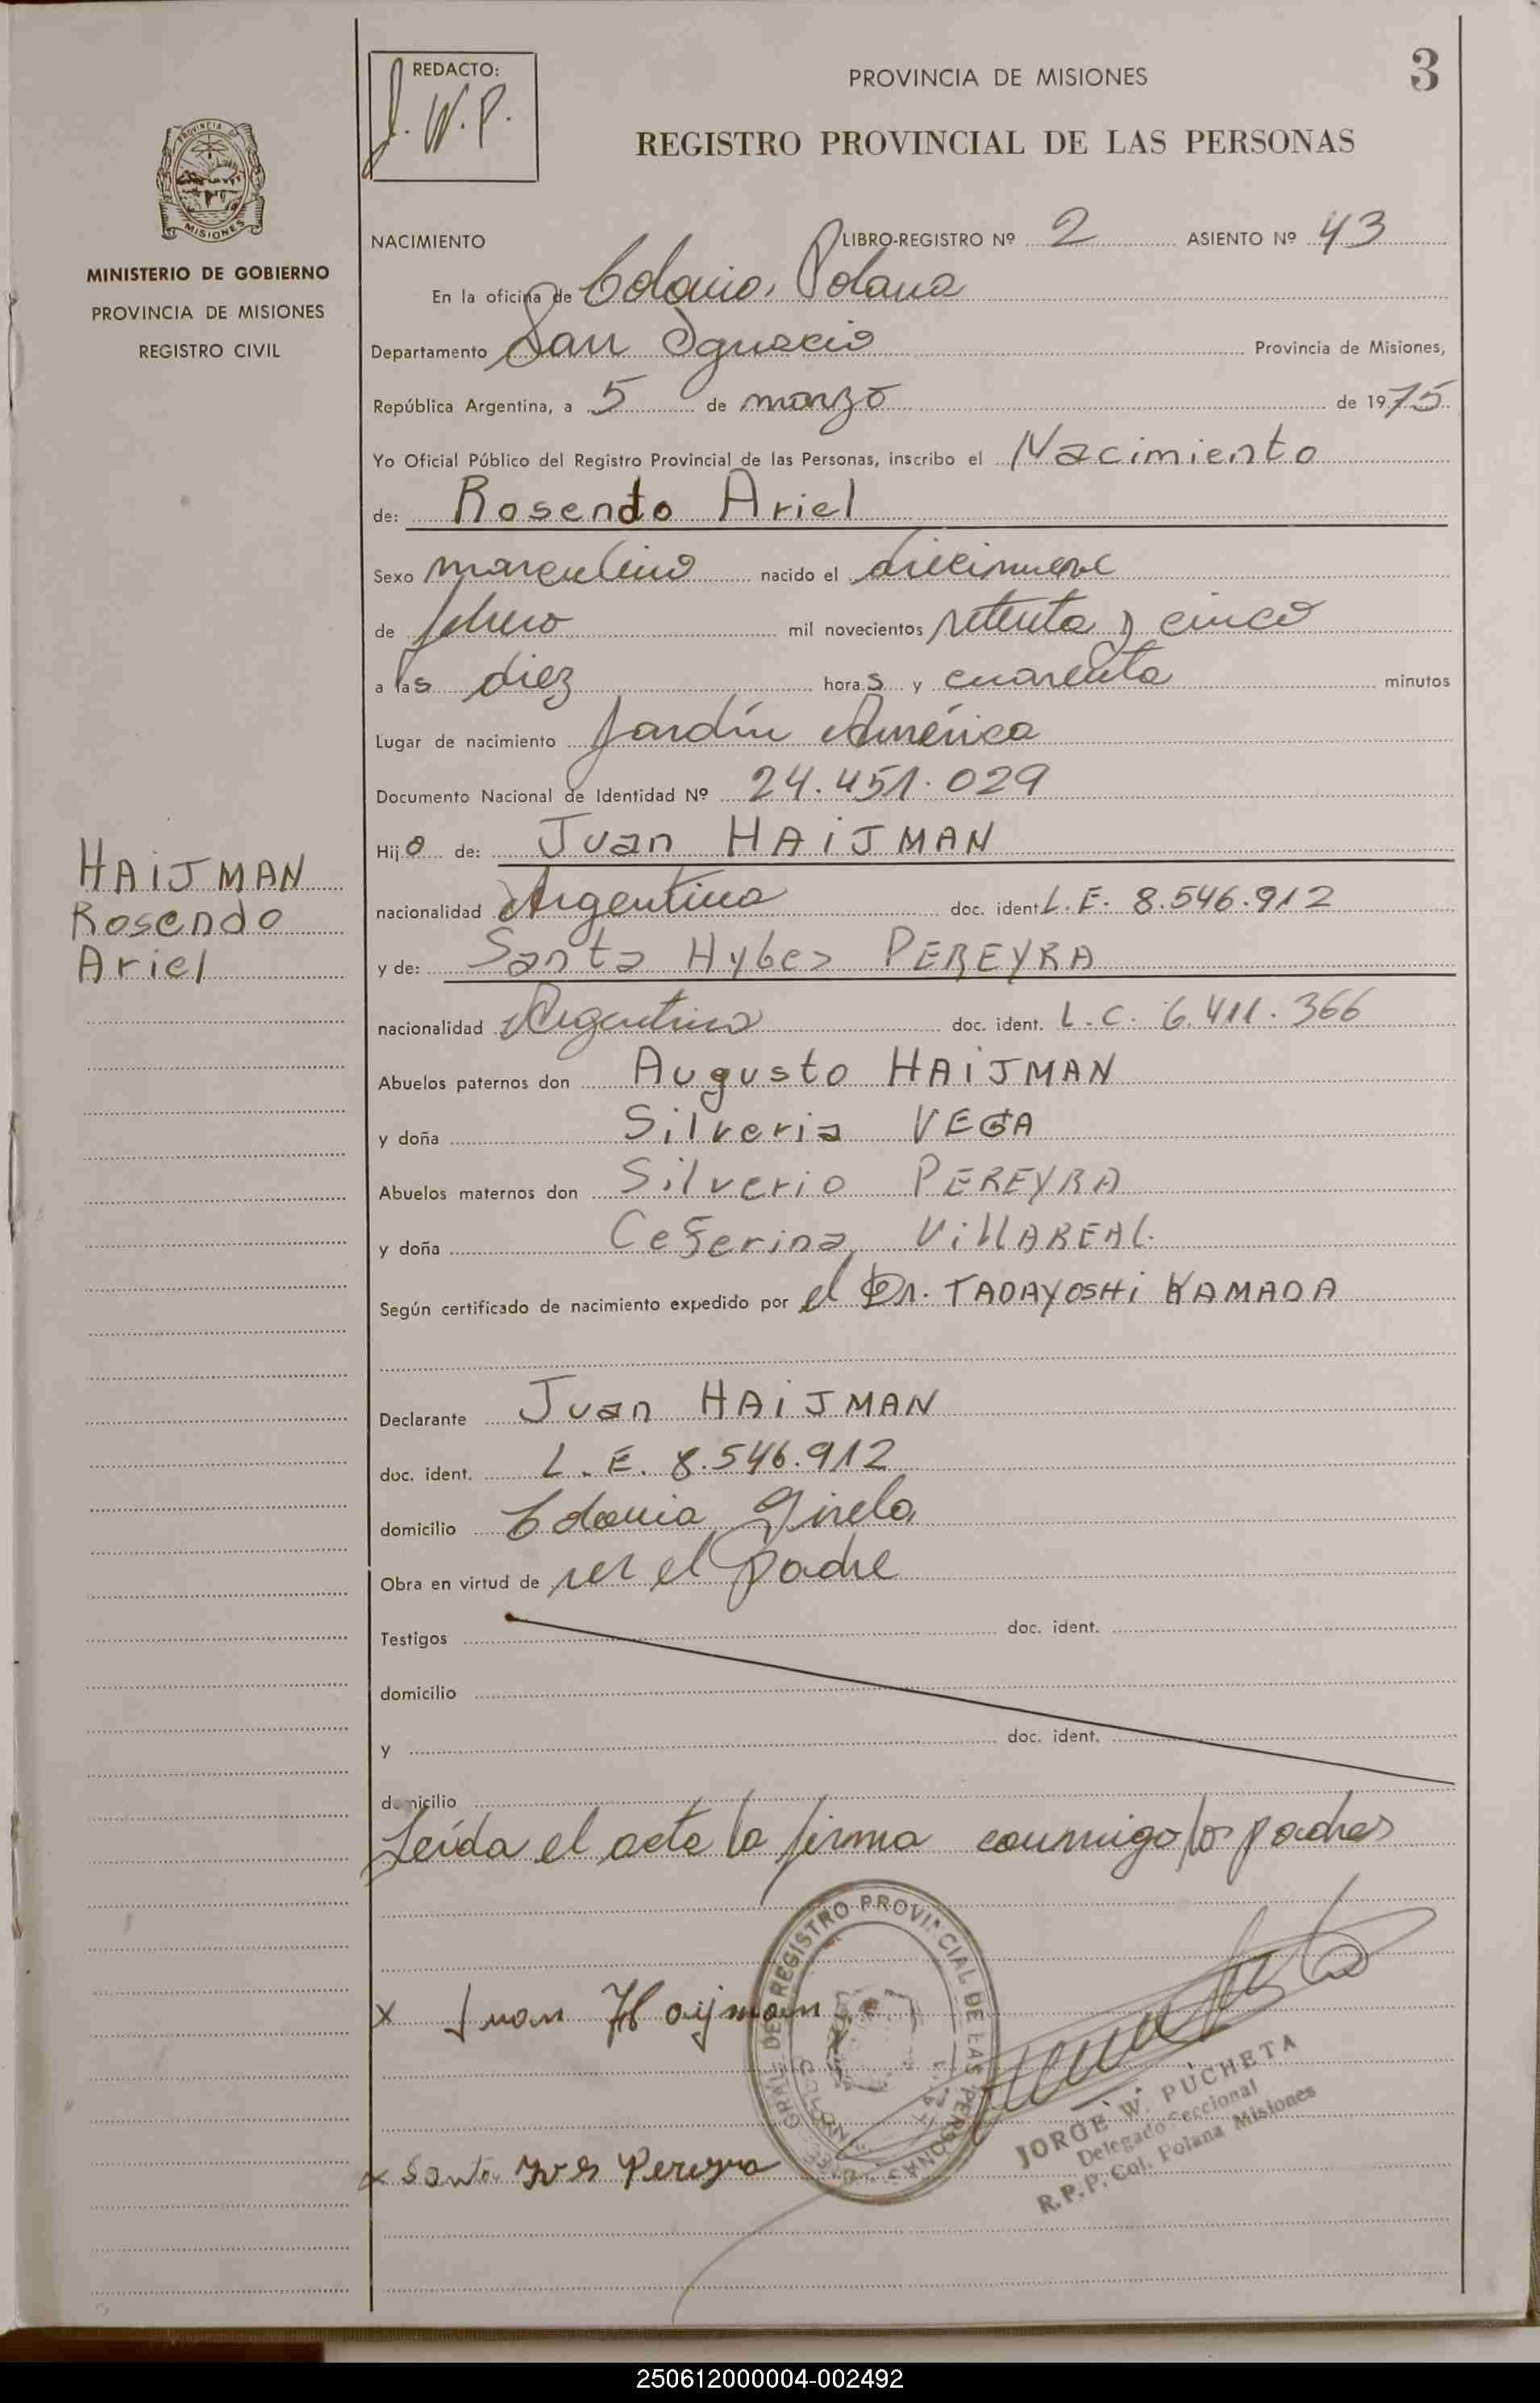 REDACTO:
J. W. P.
PROVINCIA DE MISIONES
3
REGISTRO PROVINCIAL DE LAS PERSONAS
PROVINCIA DE
MISIONES
MINISTERIO DE GOBIERNO
PROVINCIA DE MISIONES
REGISTRO CIVIL
NACIMIENTO
LIBRO-REGISTRO Nº 2 ASIENTO Nº 43
En la oficina de Colonia Polana
Departamento San Ignacio Provincia de Misiones,
República Argentina, a 5 de marzo de 1975
Yo Oficial Público del Registro Provincial de las Personas, inscribo el Nacimiento
de: Rosendo Ariel
Sexo masculino nacido el diecinueve
de febrero mil novecientos setenta y cinco
a las diez horas y cuarenta minutos
Lugar de nacimiento Jardín América
Documento Nacional de Identidad Nº 24.451.029
HAiJMAN
Rosendo
Ariel
Hijo de: Juan HAiJMAN
nacionalidad Argentina doc. ident. L.E. 8.546.912
y de: Santa Hybes PEREYRA
nacionalidad Argentina doc. ident. L.C. 6.411.366
Abuelos paternos don Augusto HAiJMAN
y doña Silveria VEGA
Abuelos maternos don Silverio PEREYRA
y doña Ceferina ViLLAREAL.
Según certificado de nacimiento expedido por el Dr. TADAYOSHi KAMADA
Declarante Juan HAiJMAN
doc. ident. L.E. 8.546.912
domicilio Colonia Gisela
Obra en virtud de ser el padre
Testigos doc. ident.
domicilio
y doc. ident.
domicilio
Leída el acta la firma conmigo los padres
DIREC. GRAL. DEL REGISTRO PROVINCIAL DE LAS PERSONAS
x Juan Haijman
x Santa Pereyra
JORGE W. PUCHETA
Delegado Seccional
R.P.P. Col. Polana Misiones
250612000004-002492